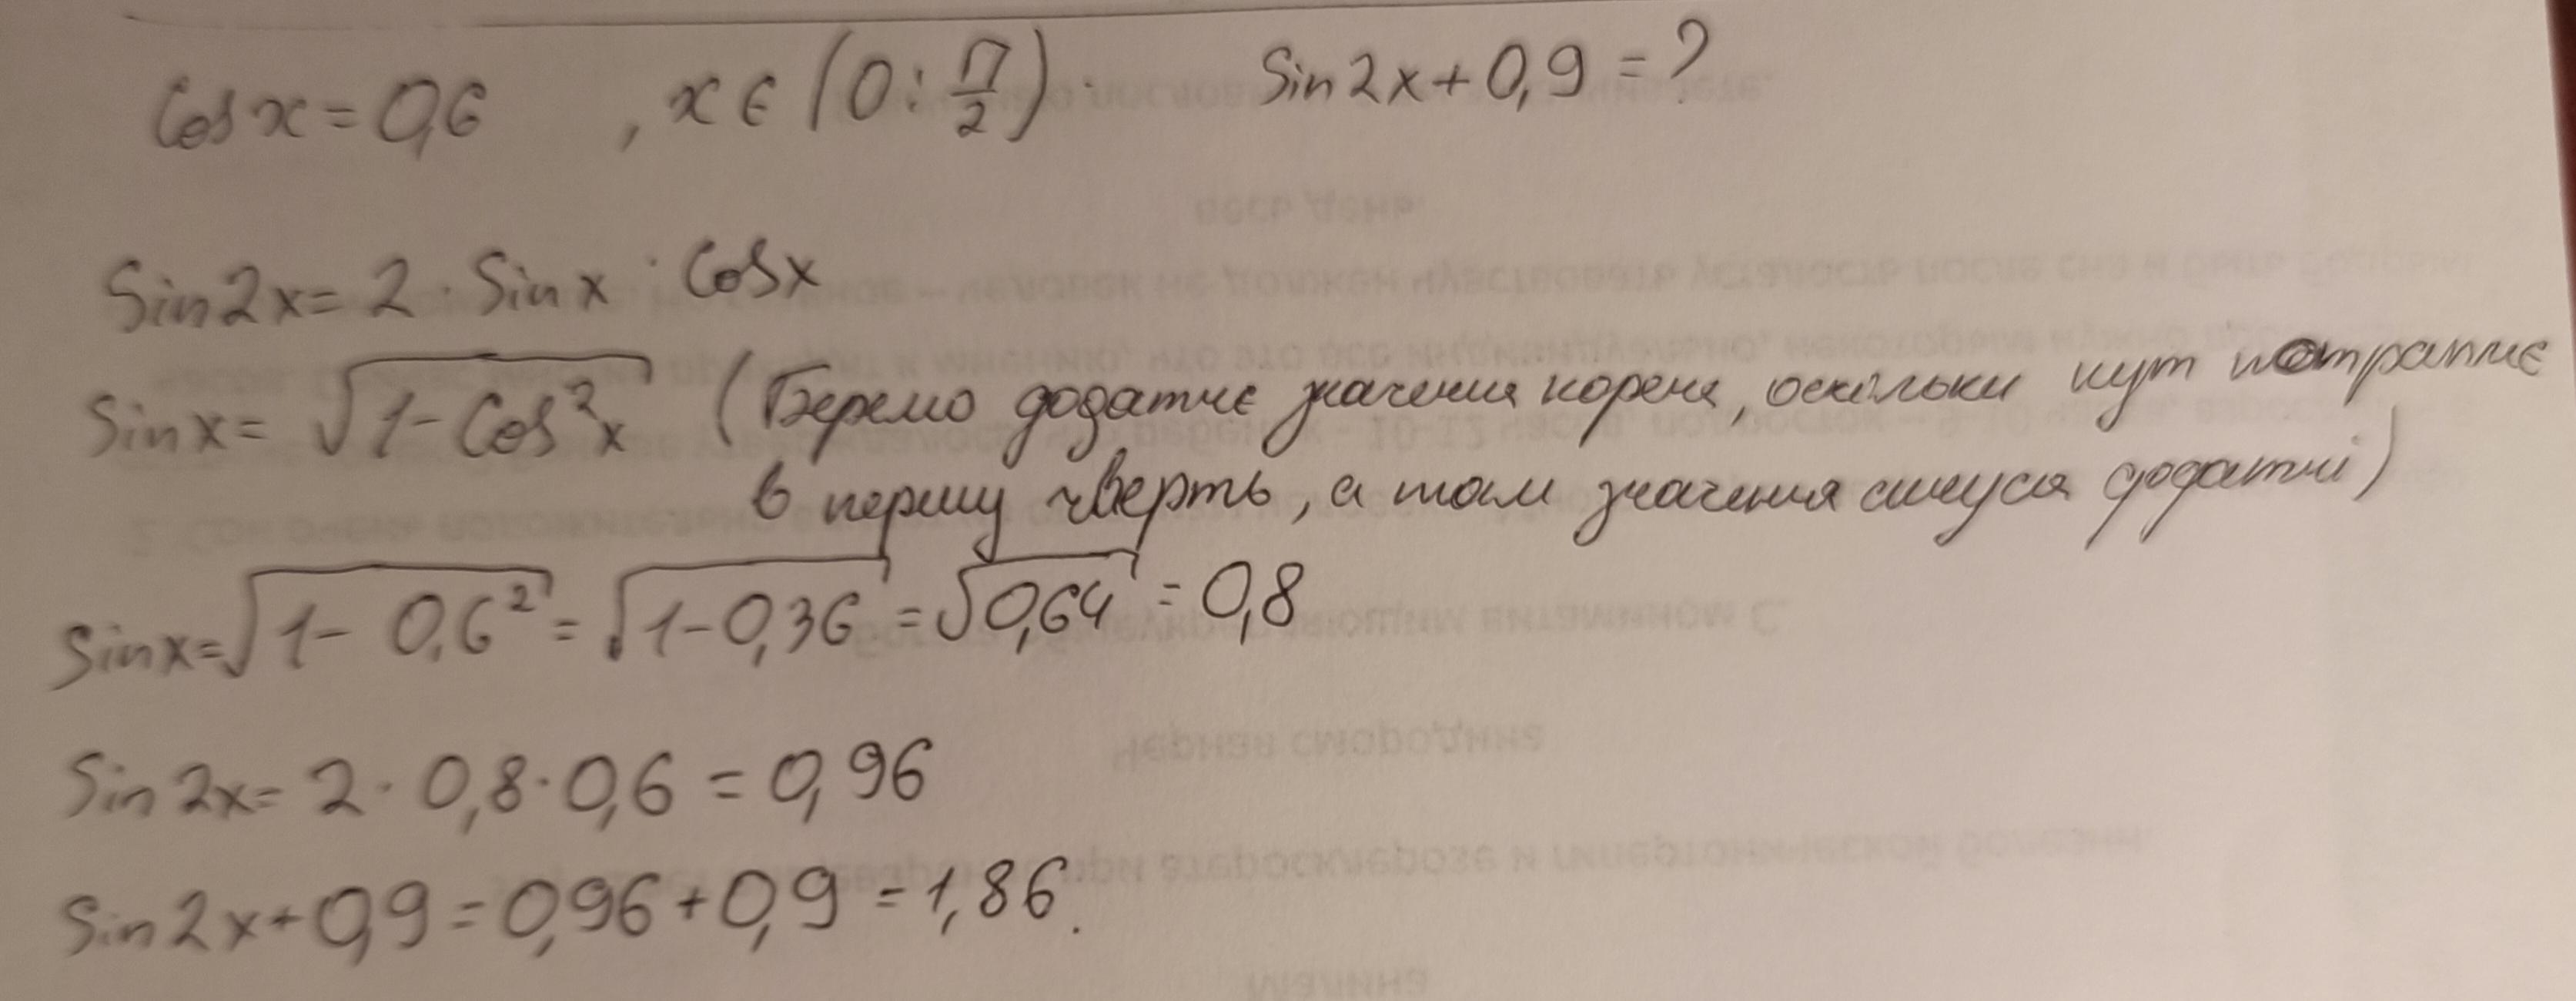 Cos x = 0,6 , x ∈ (0 : π/2). Sin 2x + 0,9 = ?
Sin 2x = 2 · Sin x · Cos x
Sin x = √(1 - Cos²x) (Беремо додатнє значення кореня, оскільки кут потрапляє
в першу чверть, а там значення синуса додатні)
Sin x = √(1 - 0,6²) = √(1 - 0,36) = √0,64 = 0,8
Sin 2x = 2 · 0,8 · 0,6 = 0,96
Sin 2x + 0,9 = 0,96 + 0,9 = 1,86.